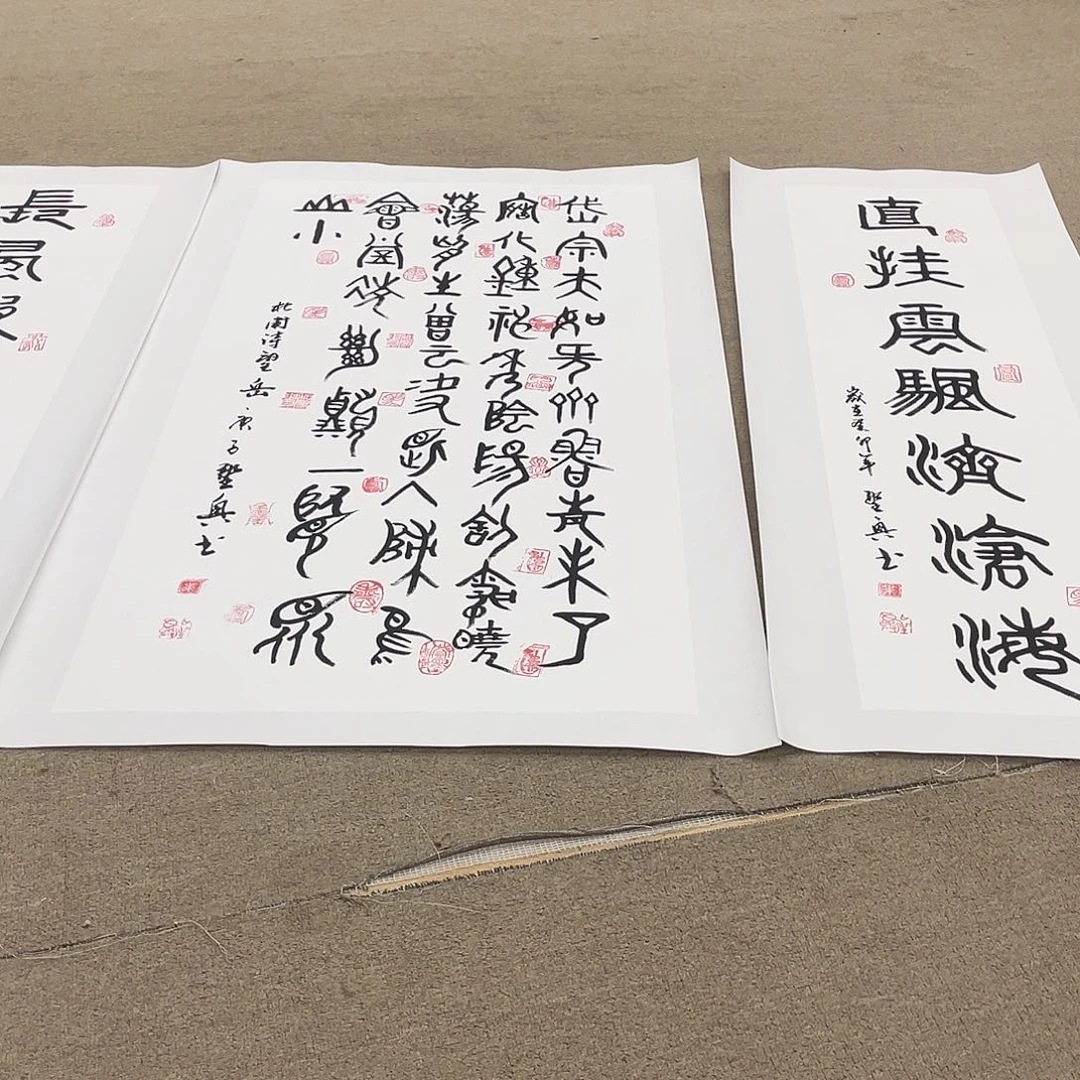 直挂雲颿濟滄海
歲在癸卯年 聖興书
岱宗夫如何齊魯青未了
造化鍾神秀陰陽割昏曉
蕩胸生曾云決眥入歸鳥
會當凌絕頂一覽眾
山小
杜甫詩望岳 庚子聖興书
長風